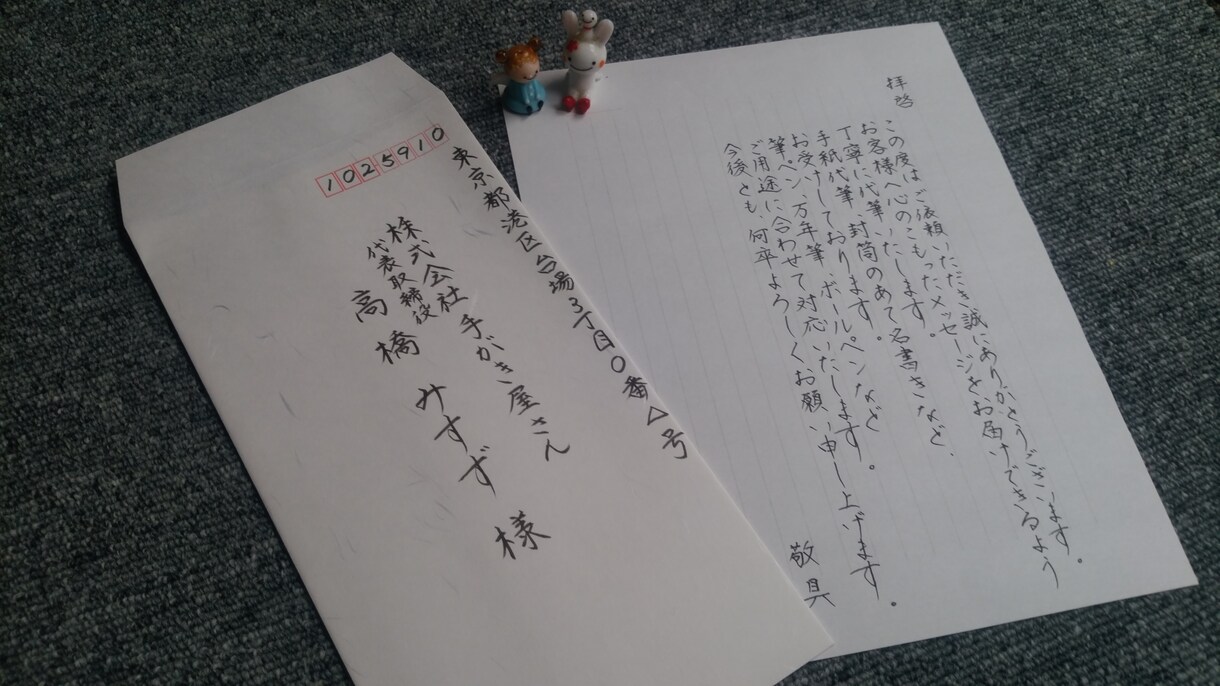 1025910
東京都港区台場3丁目〇番△号
株式会社 手がき屋さん
代表取締役
高橋 みすず 様
拝啓
この度はご依頼いただき誠にありがとうございます。
お客様へ心のこもったメッセージをお届けできるよう
丁寧に代筆いたします。
手紙代筆、封筒のあて名書きなど、
お受けしております。
筆ペン、万年筆、ボールペンなど
ご用途に合わせて対応いたします。
今後とも、何卒よろしくお願い申し上げます。
敬具